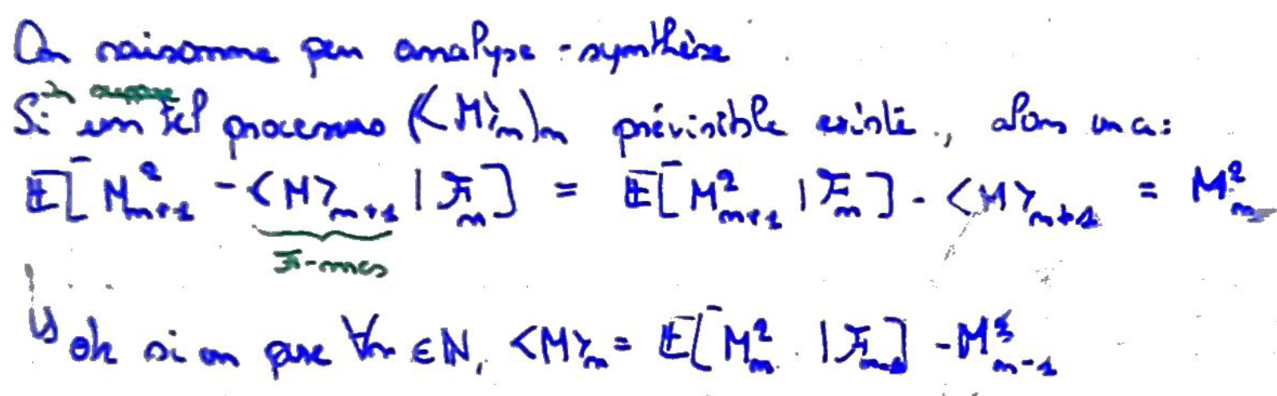 On raisonne par analyse-synthèse
Si on suppose un tel processus (<M>_n)_n prévisible existe, alors on a :
E[M²_{n+1} - <M>_{n+1} | F_n] = E[M²_{n+1} | F_n] - <M>_{n+1} = M²_n
F-mes
↳ ok si on pose ∀n ∈ N, <M>_n = E[M²_n | F_{n-1}] - M²_{n-1}